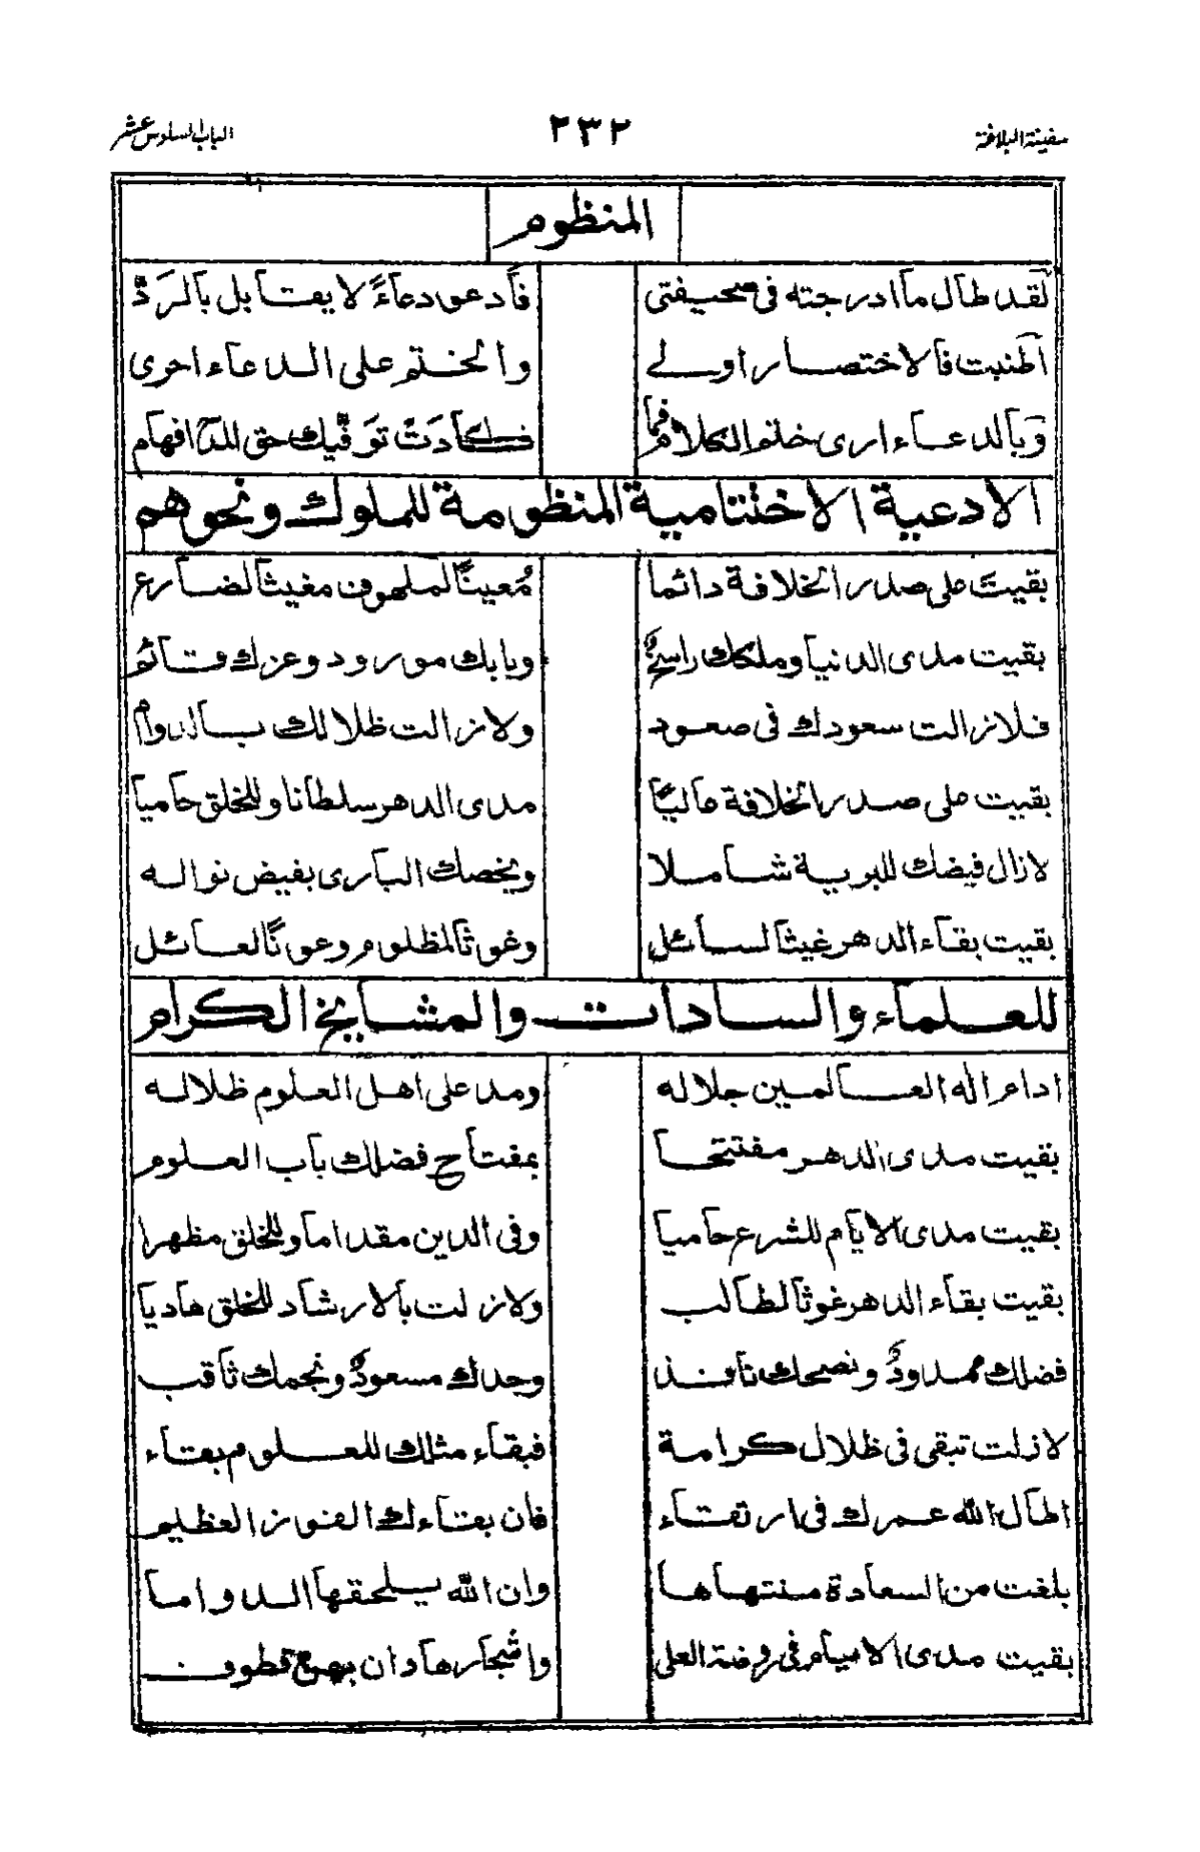 سفينة البلاغة ٢٣٢ الباب السادس عشر
المنظوم
لَقد طال ما ادرجته فى صحيفتى فأدعو دعاءً لا يقابل بالرَدِّ
اطنبت فالاختصار اولى والختم على الدعاء احرى
وَبالدعاء ارى ختم الكلام فما فكادَتْ تَوفِّيك حق المدح افهام
الادعية الاختتامية المنظومة للملوك ونحوهم
بقيتَ على صدر الخلافة دائما مُعيناً لملهوف مغيثا لضارع
بقيت مدى الدنيا وملكك راسخٌ وبابك مورود وعزك قائم
فلا زالت سعودك فى صعود ولا زالت ظلالك بالدوام
بقيت على صدر الخلافة عاليًا مدى الدهر سلطانا وللخلق حاميا
لا زال فيضك للبرية شاملا ويخصك البارى بفيض نواله
بقيت بقاء الدهر غيثا لسائل وغوثا لمظلوم وعونًا لعائل
للعلماء والسادات والمشايخ الكرام
ادام اله العالمين جلاله ومد على اهل العلوم ظلاله
بقيت مدى الدهر مفتتحا بمفتاح فضلك باب العلوم
بقيت مدى الايام للشرع حاميا وفى الدين مقداما وللخلق مظهرا
بقيت بقاء الدهر غوثا لطالب ولا زلت بالارشاد للخلق هاديا
فضلك ممدودٌ ونصحك نافذ وجدك مسعودٌ ونجمك ثاقب
لا زلت تبقى فى ظلال كرامة فبقاء مثلك للعلوم بقاء
اطال الله عمرك فى ارتقاء فان بقاءك الفوز العظيم
بلغت من السعادة منتهاها وان الله يلحقها الدواما
بقيت مدى الايام فى روضة العلى واشجارها دان بهن قطوف